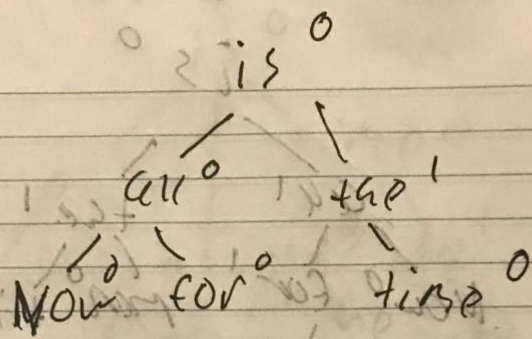 is 0
all 0 the 1
Now 0 for 0 time 0